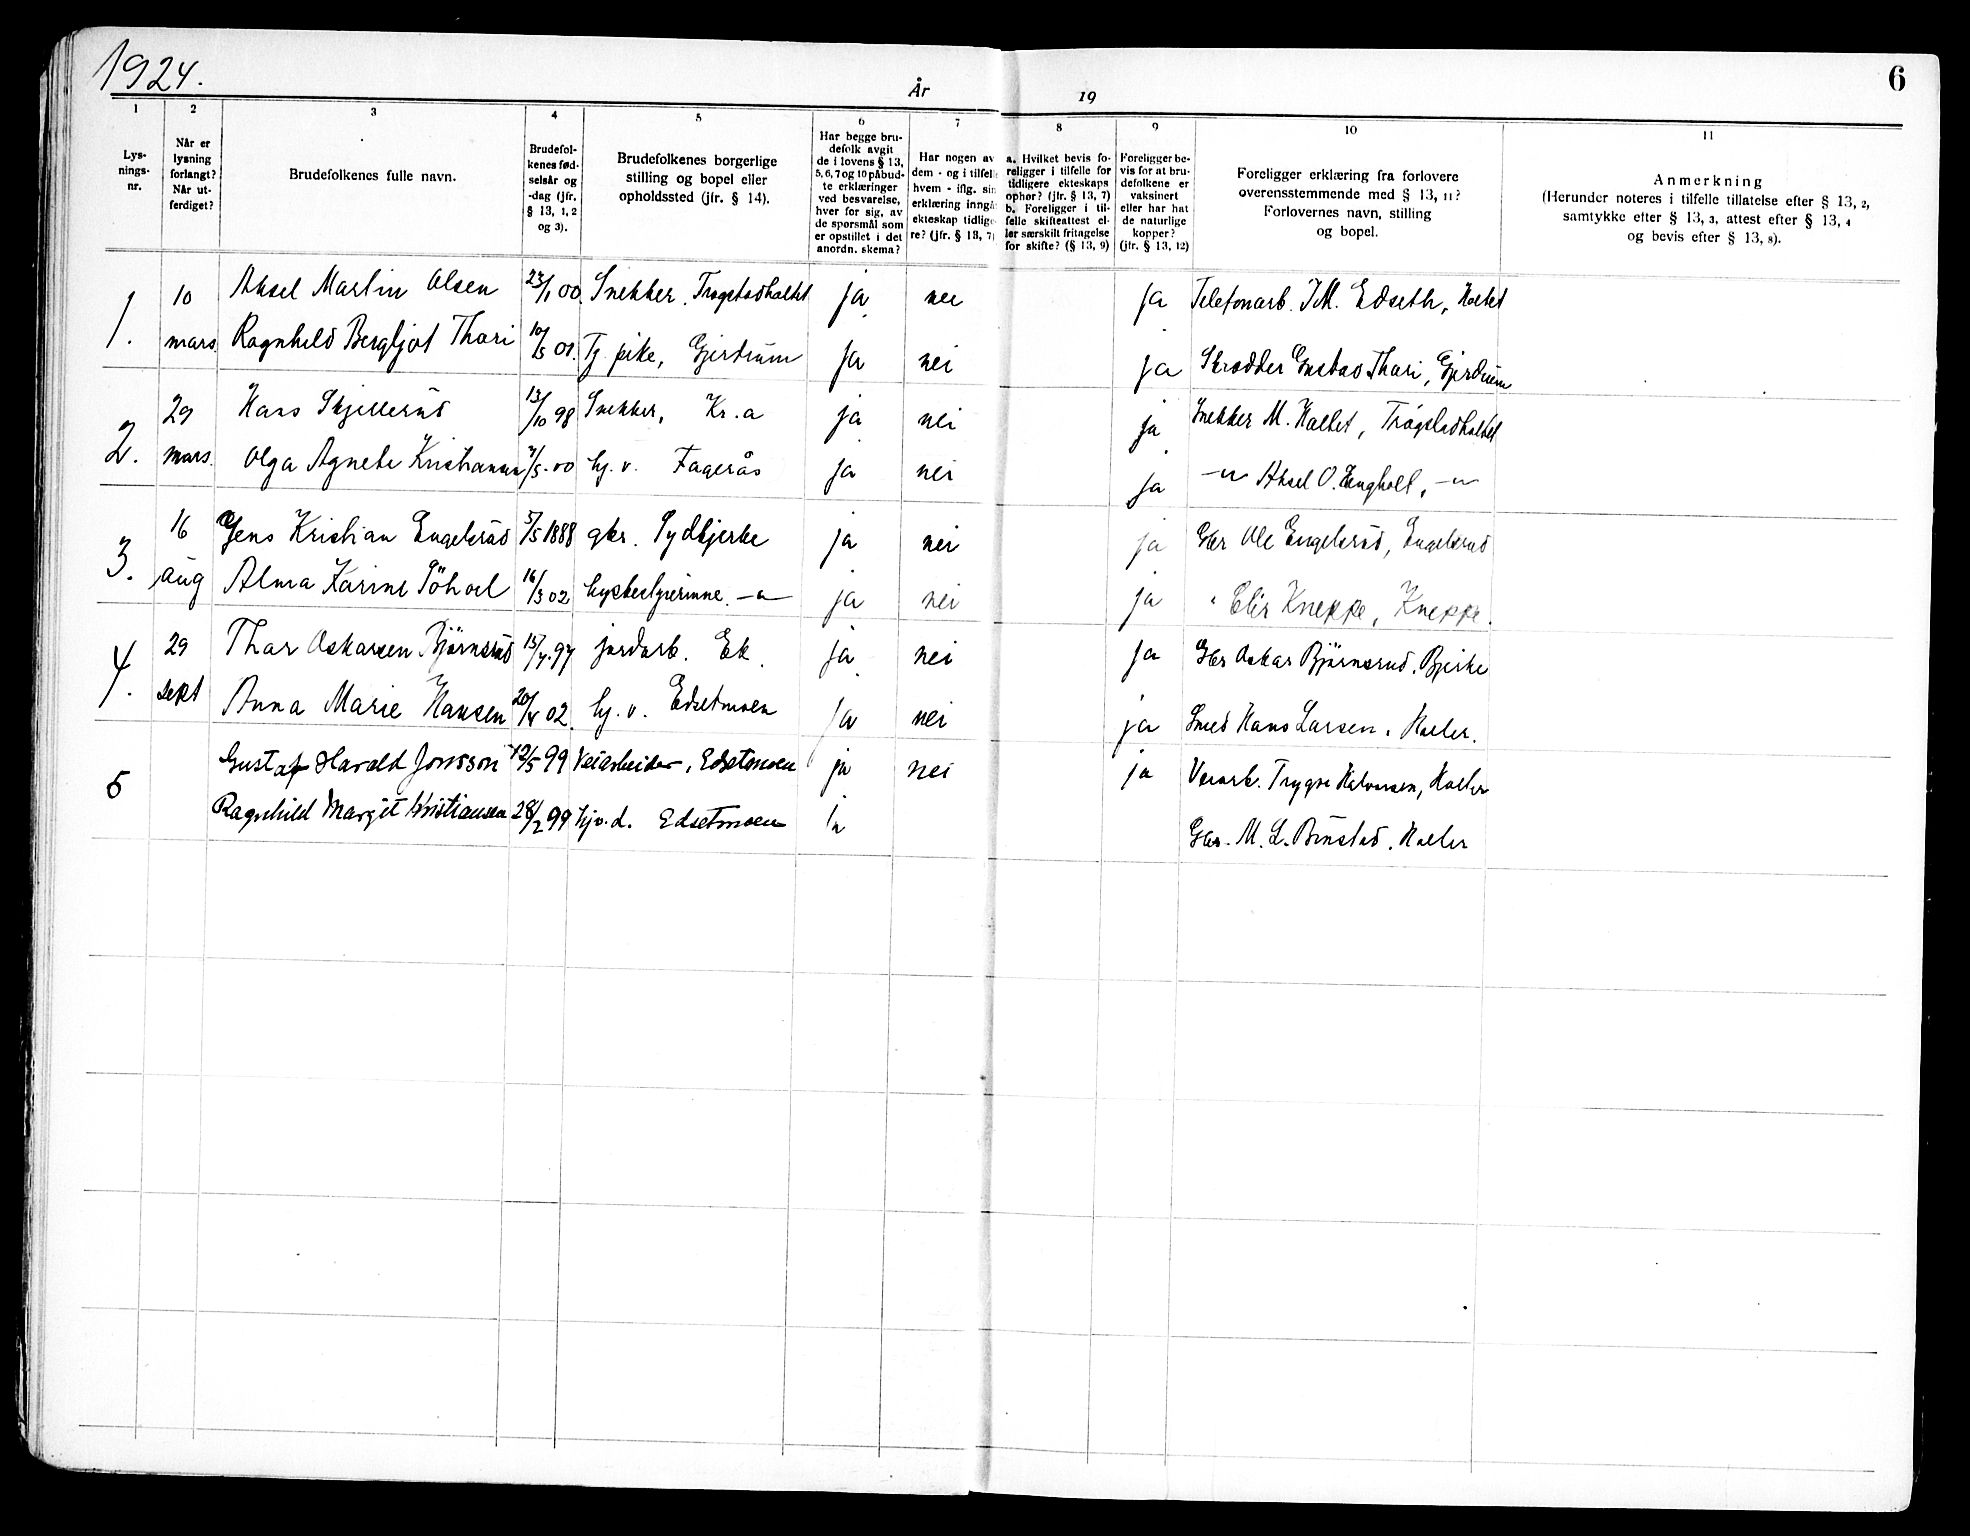 1924.
År 19
6
1 2 3 4 5 6 7 8 9 10 11
Lys-
nings-
nr.
Når er
lysning
forlangt?
Når ut-
ferdiget?
Brudefolkenes fulle navn.
Brudefol-
kenes fød-
selsår og
-dag (jfr.
§ 13, 1, 2
og 3).
Brudefolkenes borgerlige
stilling og bopel eller
opholdssted (jfr. § 14).
Har begge bru-
defolk avgit
de i lovens § 13,
5, 6, 7 og 10 påbud-
te erklæringer
ved besvarelse,
hver for sig, av
de spørsmål som
er opstillet i det
anordn. skema?
Har nogen av
dem - og i tilfelle
hvem - iflg. sin
erklæring inngå
ekteskap tidlige-
re? (jfr. § 13, 7)
a. Hvilket bevis fo-
religger i tilfelle for
tidligere ekteskaps
ophør? (jfr. § 13, 7)
b. Foreligger i til-
felle skifteattest el-
ler særskilt fritagelse
for skifte? (§ 13, 9)
Foreligger be-
vis for at bru-
defolkene er
vaksinert
eller har hat
de naturlige
kopper?
(jfr. § 13, 12)
Foreligger erklæring fra forlovere
overensstemmende med § 13, 11?
Forlovernes navn, stilling
og bopel.
Anmerkning
(Herunder noteres i tilfelle tillatelse efter § 13, 2,
samtykke efter § 13, 3, attest efter § 13, 4
og bevis efter § 13, 8).
1. 10 Aksel Martin Olsen 23/1 00. Snekker. Trøgstadholtet ja nei ja Telefonarb. Edseth, Holtet
mars Ragnhild Bergljot Thori 10/5 01. Tj. pike, Gjerdrum ja nei ja Skrædder Gustav Thori, Gjerdrum
2. 29 Hans Skjellerud 13/10 98 Snekker, Kr.a ja nei ja Snekker M. Holtet, Trøgstadholtet
mars. Olga Agnete Kristiansen /5. 00 hj. v. Fagerås ja nei ja -"- Aksel O. Engholt, -"-
3. 16 Jens Kristian Engelsrud 5/5 1888 gbr. Sydkjerke ja nei ja Gbr Ole Engelsrud, Engelsrud
aug Alma Karine 16/3 02 husbestyrerinne. -"- ja nei ja " Kneppe, Kneppe.
4. 29 Thor Oskarsen Bjørnsrud 15/7. 97 jordarb. Ek. ja nei ja Gbr Oskar Bjørnsrud. Bjerke
sept Anna Marie Hansen 20/4 02. hj. v. Edsetmoen ja nei ja Smed Hans Larsen. Holter.
5 Gustaf Harald Jonsson 12/5 99 Veiarbeider, Edsetmoen ja nei ja Veiarb. Trygve Halvorsen, Holter
Ragnhild Margit Kristiansen 28/2 99 hjv. d. Edsetmoen ja Gbr. M. L. Holter